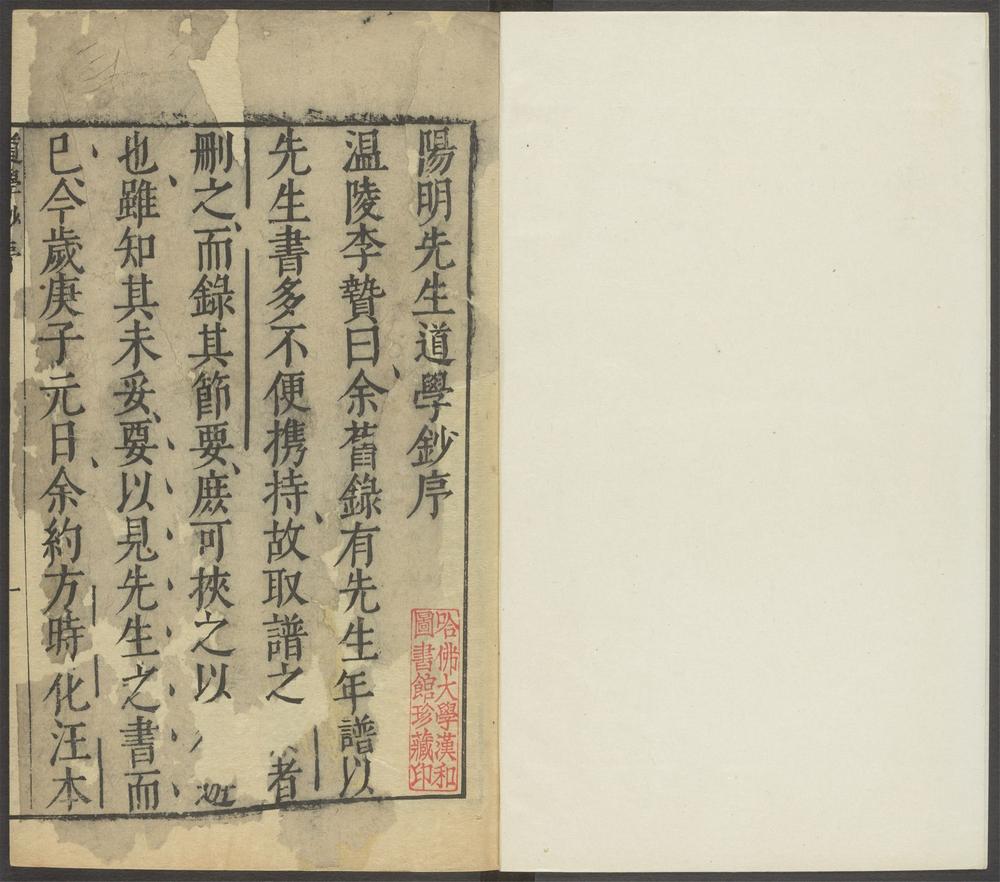 陽明先生道學鈔序
溫陵李贄曰余舊錄有先生年譜以
先生書多不便携持故取譜之者
刪之而錄其節要庶可挾之以
也雖知其未妥要以見先生之書而
已今歲庚子元日余約方時化汪本
哈佛大學漢和
圖書館珍藏印
道學鈔序
一